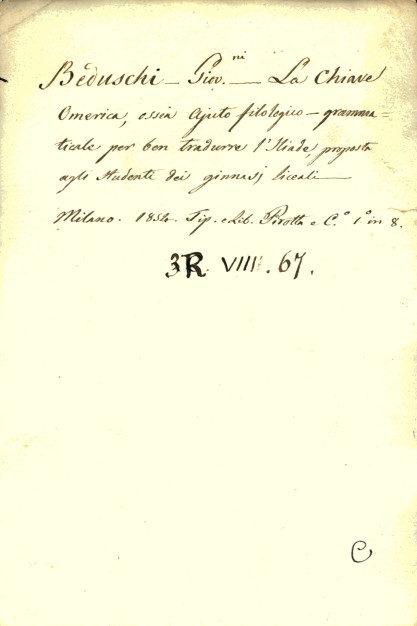 Beduschi – Giov.ni – La Chiave
Omerica, ossia Ajuto filologico – gramma=
ticale per ben tradurre l'Iliade, proposta
agli studenti dei ginnasj liceali –
Milano. 185 Tip. e Lib. Pirotta e C.° 1.° in 8.
3R. VIII. 67.
C